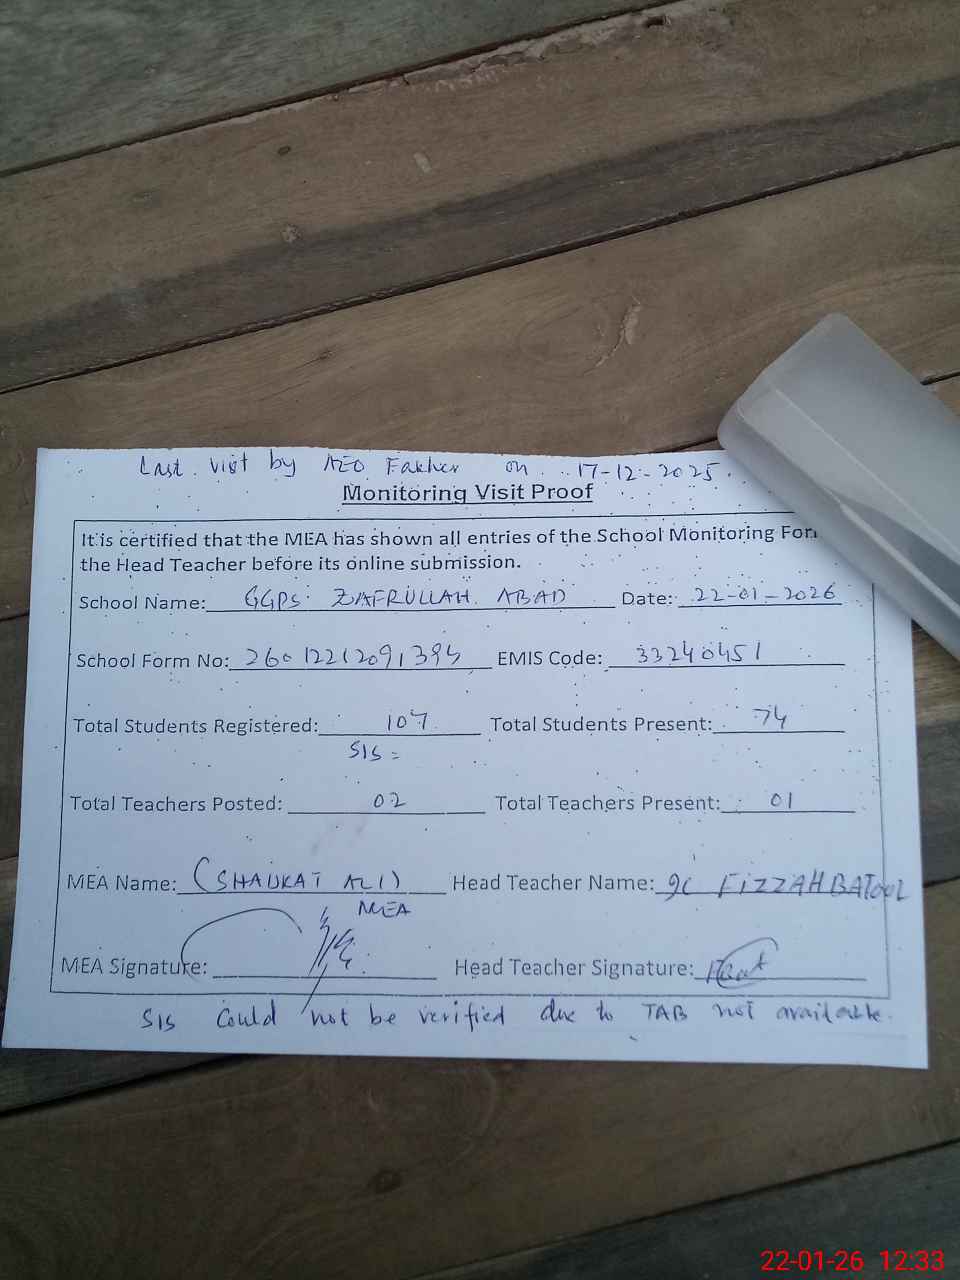 Last visit by AEO Fakher on 17-12-2025.
Monitoring Visit Proof
It is certified that the MEA has shown all entries of the School Monitoring Form
the Head Teacher before its online submission.
School Name: GGPS ZAFRULLAH ABAD Date: 22-01-2026
School Form No: EMIS Code: 33240451
Total Students Registered: 107 Total Students Present: 74
SIS =
Total Teachers Posted: 02 Total Teachers Present: 01
MEA Name: (SHAUKAT ALI) Head Teacher Name: FIZZAH BATOOL
MEA
MEA Signature: Head Teacher Signature:
SIS Could not be verified due to TAB not available.
22-01-26 12:33